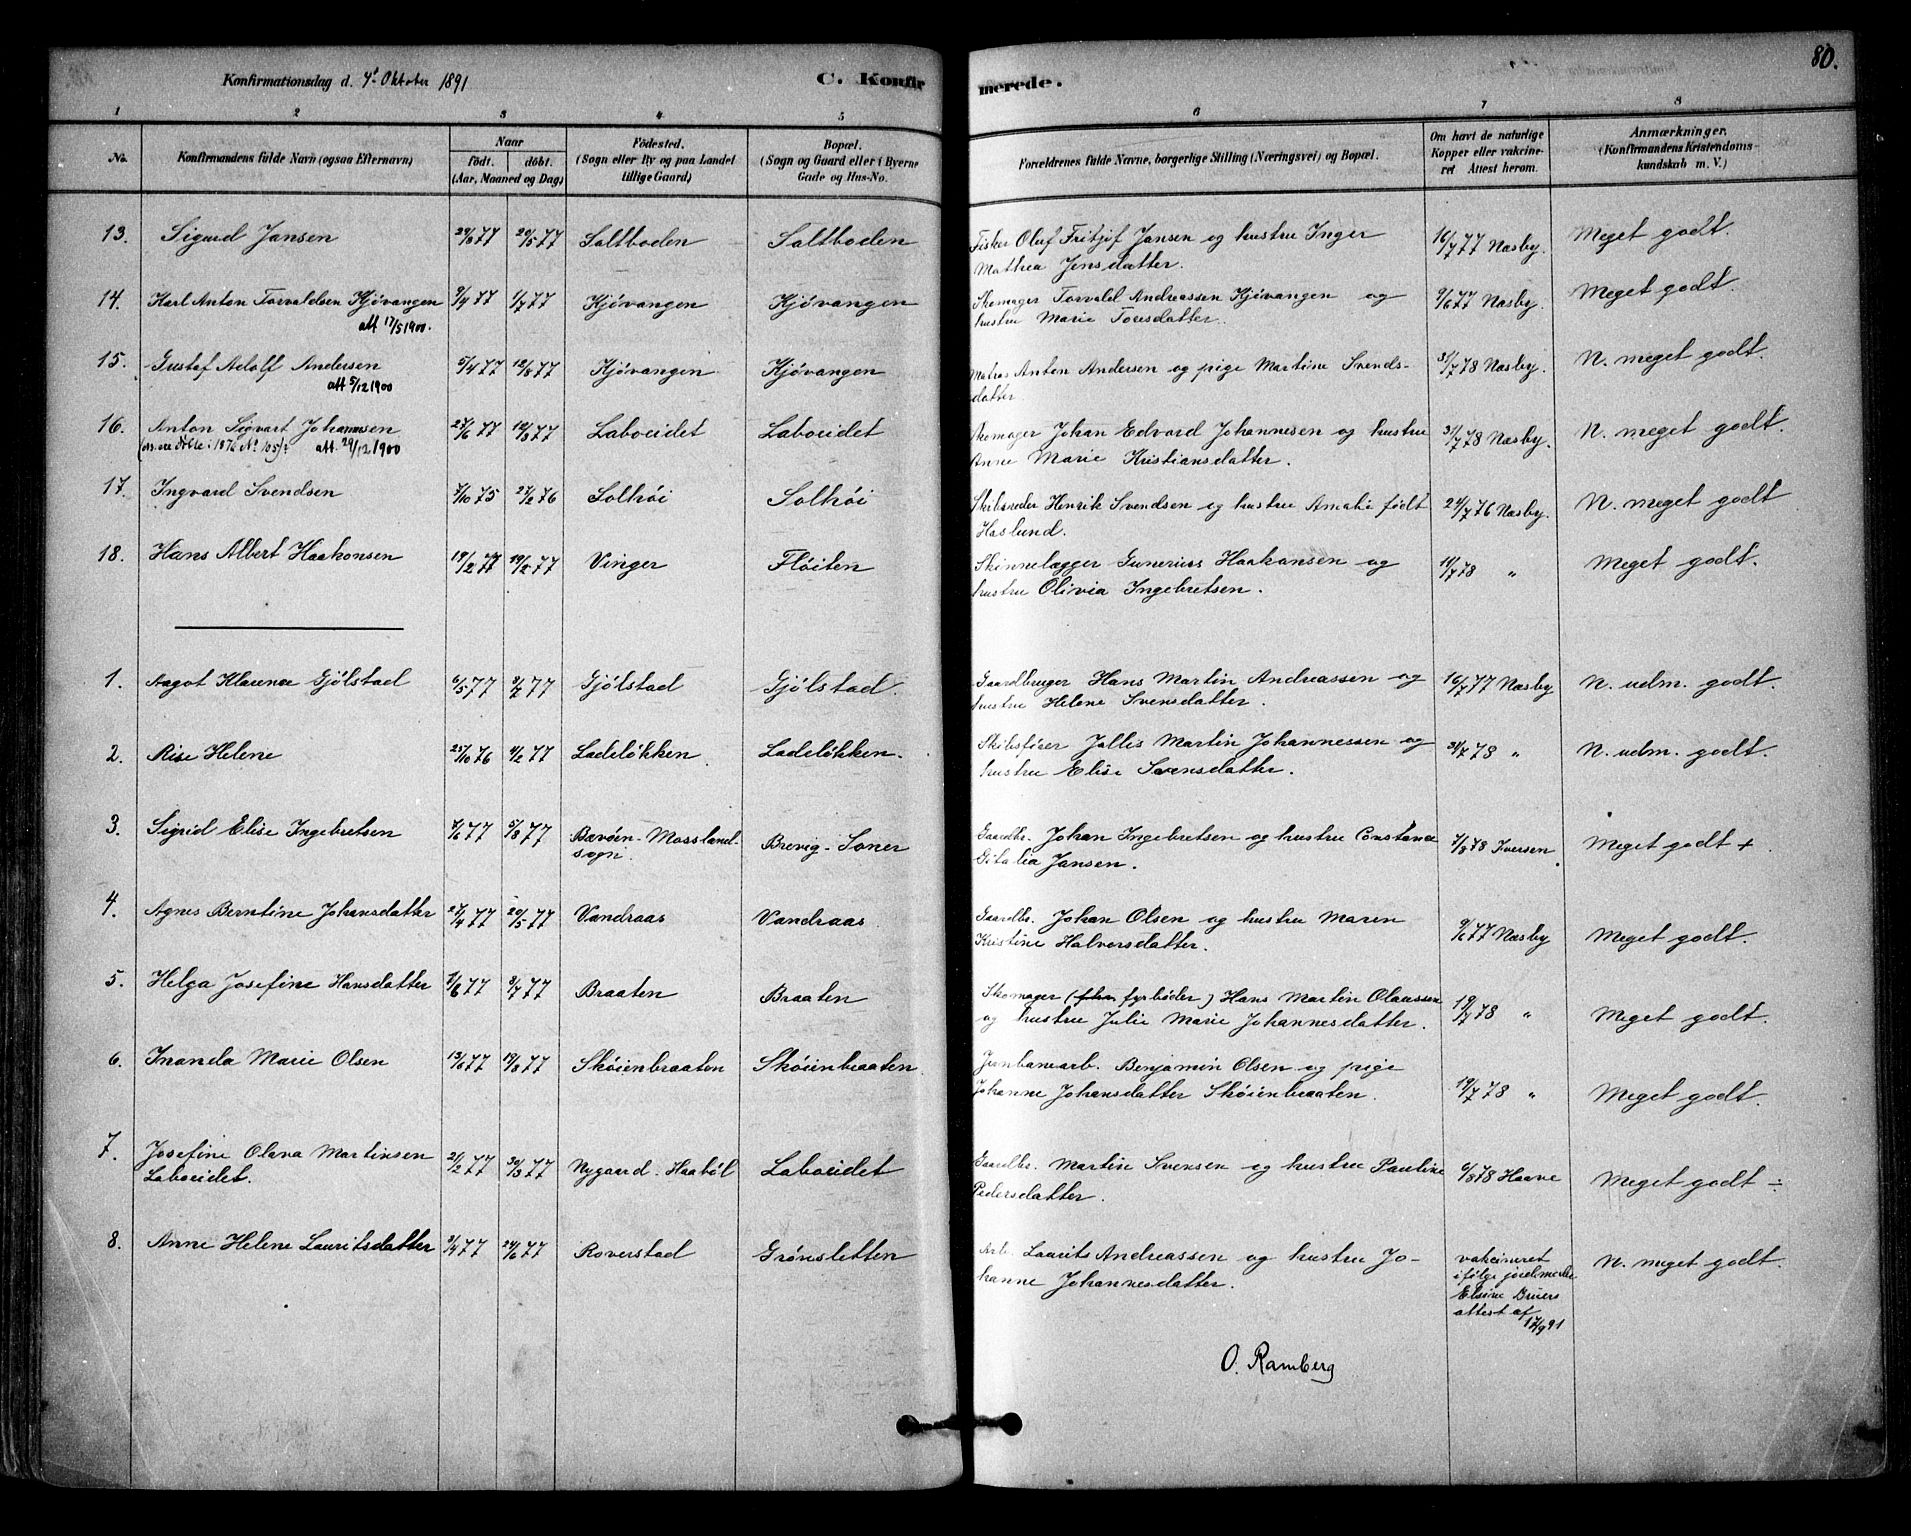 80.
Konfirmationsdag d. 4de Oktober 1891 C. Konfirmerede.
1 2 3 4 5 6 7 8
No. Konfirmandens fulde Navn (ogsaa Efternavn) Naar født. døbt. (Aar, Maaned og Dag) Fødested. (Sogn eller By og paa Landet tillige Gaard) Bopæl. (Sogn og Gaard eller i Byerne Gade og Hus-No. Forældrenes fulde Navne, borgerlige Stilling (Næringsvei) og Bopæl. Om havt de naturlige Kopper eller vakcineret Attest herom. Anmærkninger. (Konfirmandens Kristendomskundskab m. V.)
13. Sigurd Jansen 29/3 77 20/5 77 Saltboden Saltboden Fisker Oluf Fritjof Jansen og hustru Inger 16/7 77 Næsby. Meget godt.
Mathea Jensdatter.
14. Karl Anton Torvaldsen Kjøvangen 9/4 77 1/7 77 Kjøvangen Kjøvangen Skomager Torvald Andreassen Kjøvangen og 9/6 77 Næsby. Meget godt.
att 17/5 1900. hustru Marie Toresdatter.
15. Gustaf Adolf Andersen 5/4 77 12/8 77 Kjøvangen Kjøvangen Matros Anton Andersen og pige Martine Svends- 31/7 78 Næsby. N. meget godt.
att 5/12 1900 datter.
16. Anton Sigvart Johannesen 23/6 77 12/8 77 Laboeidet Laboeidet Skomager Johan Edvard Johannesen og hustru 31/7 78 Næsby. N. meget godt.
att. 29/12 1900 Anne Marie Kristiansdatter.
17. Ingvard Svendsen 7/10 75 27/2 76 Solhøi Solhøi Skibsreder Henrik Svendsen og hustru Amalie født 24/7 76 Næsby. N. meget godt
Haslund.
18. Hans Albert Haakonsen 18/2 77 19/2 77 Vinger Fløiten Skinnelægger Gunerius Haakonsen og 11/7 78 " Meget godt.
hustru Olivia Ingebretsen.
1. Aagot Klarense Gjølstad 6/5 77 8/7 77 Gjølstad Gjølstad. Gaardbruger Hans Martin Andreassen og 16/7 77 Næsby N. udm. godt.
hustru Helene Svensdatter.
2. Rise Helene 25/10 76 4/2 77 Ladeløkken Ladeløkken. Skibsfører Jallis Martin Johannessen og 31/7 78 " N. udm. godt.
hustru Elise Svensdatter.
3. Sigrid Elise Ingebretsen 7/6 77 5/8 77 Bævøen-Mossland- Brevig-Soner Gaardbr. Johan Ingebretsen og hustru Constance 7/8 78 Iversen. Meget godt +
sogn. Gitalia Jansen.
4. Agnes Berntine Johansdatter 27/4 77 20/5 77 Vandraas Vandraas Gaardbr. Johan Olsen og hustru Maren 9/6 77 Næsby Meget godt.
Kristine Halvorsdatter.
5. Helga Josefine Hansdatter 1/6 77 8/7 77 Braaten Braaten Skomager ( fyrbøder) Hans Martin Olaussen 19/7 78 " Meget godt.
og hustru Julie Marie Johannesdatter.
6. Inanda Marie Olsen 13/6 77 19/8 77 Skøienbraaten Skøienbraaten. Jernbanearb. Benjamin Olsen og pige 19/7 78 " Meget godt.
Johanne Johansdatter Skøienbraaten.
7. Josefine Olava Martinsen 21/2 77 30/3 77 Nygaard. Haabøl Laboeidet Gaardbr. Martin Svensen og hustru Pauline 6/8 78 Haave Meget godt ÷
Laboeidet. Pedersdatter.
8. Anne Helene Lauritsdatter 3/4 77 24/6 77 Roverstad Grønsletten Arb. Laurits Andreassen og hustru Jo- vakcineret N. meget godt.
hanne Johannesdatter. ifølge jordemoder
Elsine Gruers
attest af
17/9 91
O. Ramberg